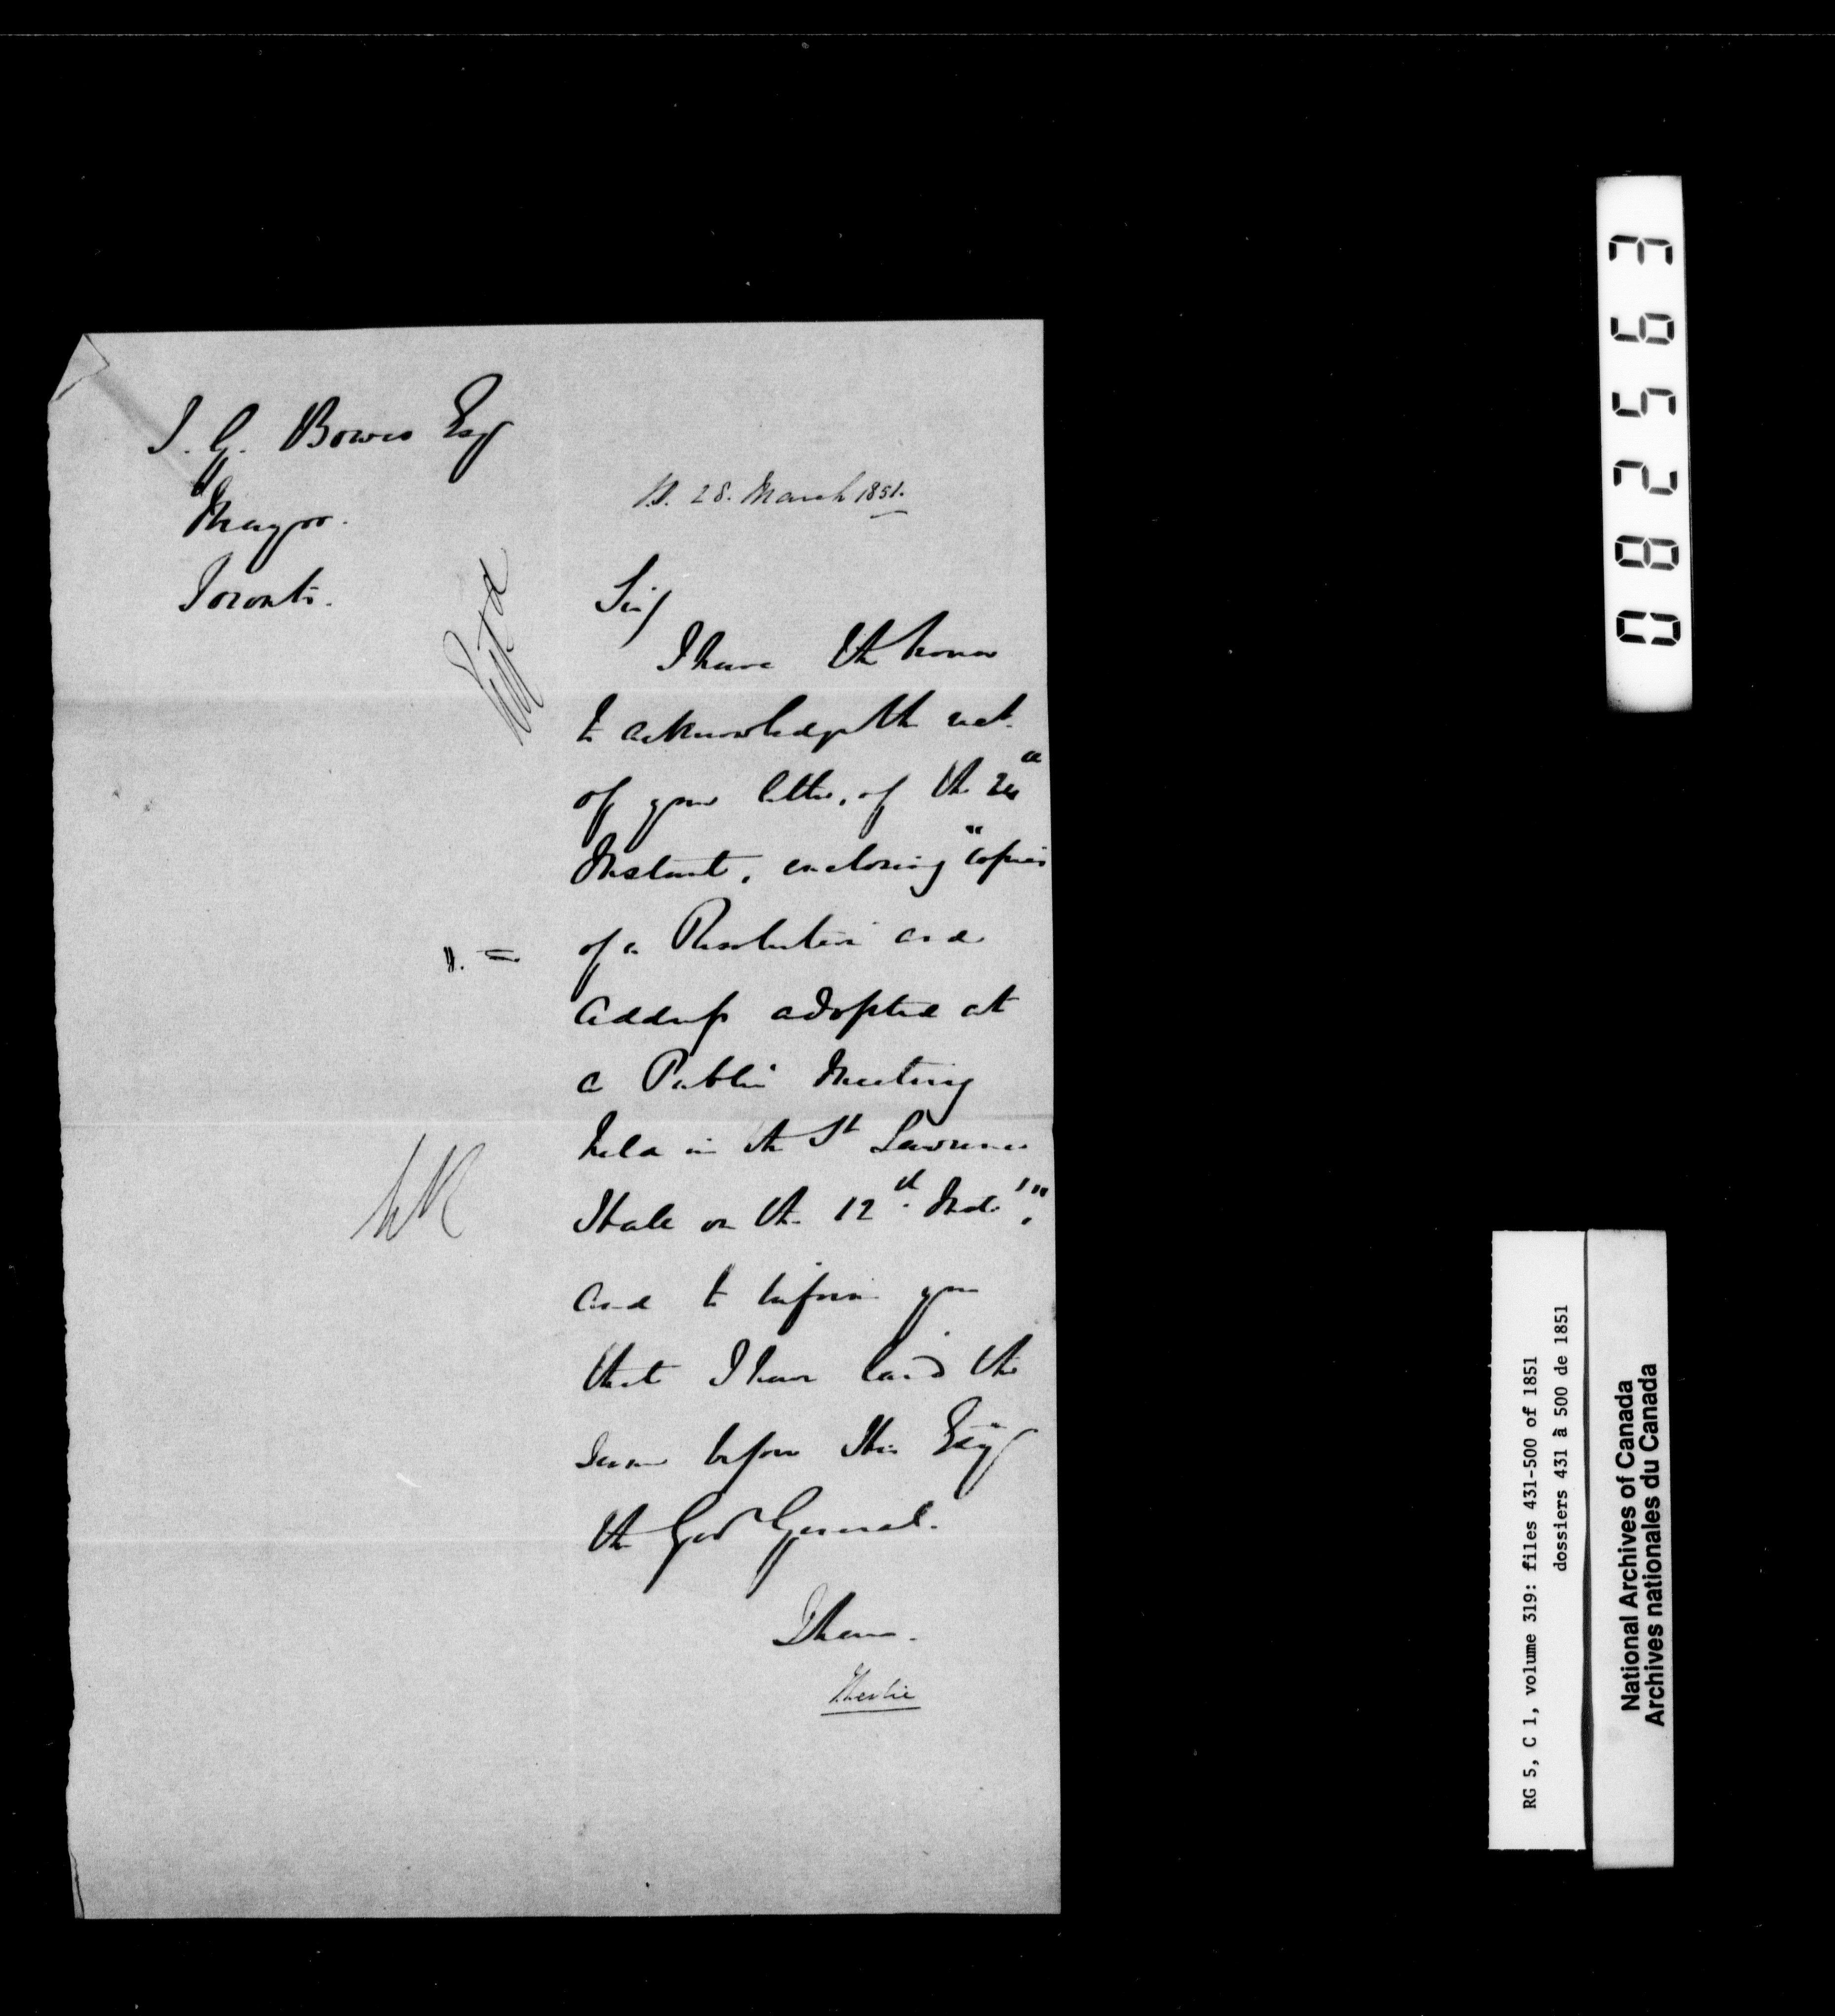 J. G. Bowes Esq
Mayor.
Toronto.
28. March 1851.
Sir/
I have the honor
to acknowledge the rect.
of your letter, of the
Instant, enclosing "copies
of a Resolution and
Address adopted at
a Public Meeting
held in the St Lawrence
Hall on the 12th. Inst",
and to inform you
that I have laid the
same before His Exy
the Govr General.
I have.
082563
RG 5, C 1, volume 319: files 431-500 of 1851
dossiers 431 à 500 de 1851
National Archives of Canada
Archives nationales du Canada